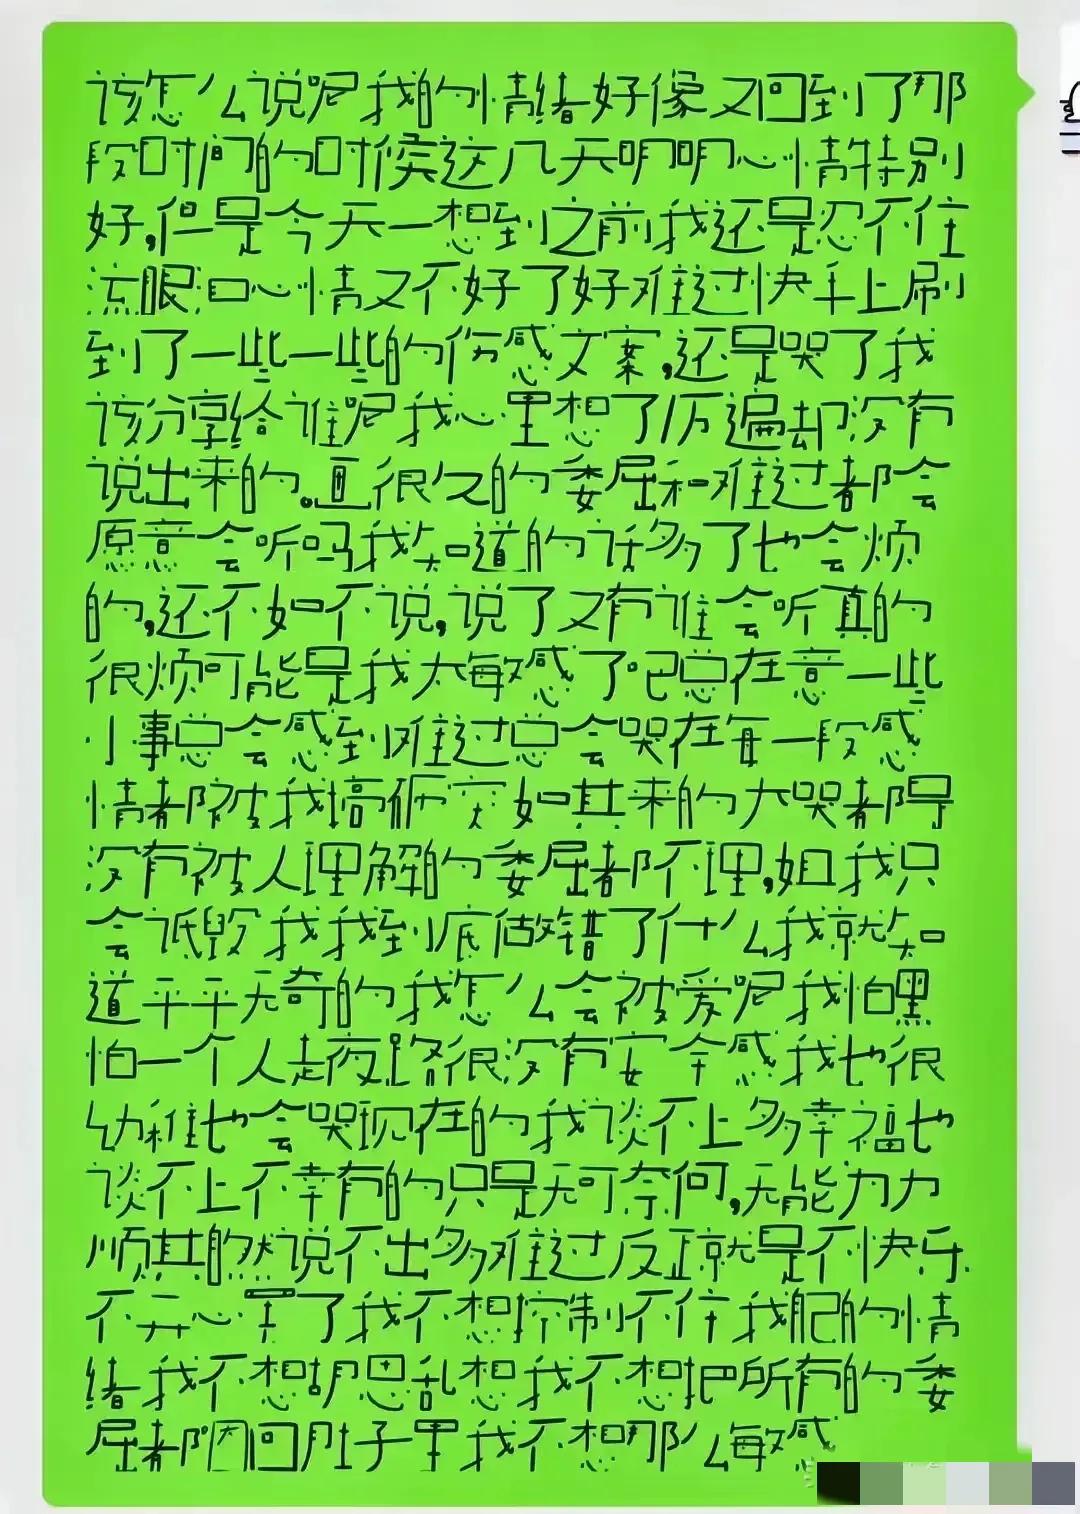 该怎么说呢我的情绪好像又回到了那
段时间的时候这几天明明心情特别
好,但是今天一想到之前我还是忍不住
流眼泪心情又不好了好难过快手上刷
到了一些一些的伤感文案,还是哭了我
该分享给谁呢我心里想了万遍却没有
说出来的。直很久的委屈和难过都会
愿意会听吗我知道的话多了也会烦
的,还不如不说,说了又有谁会听真的
很烦可能是我太敏感了吧总在意一些
小事总会感到难过总会哭在每一段感
情都被我搞砸 如其来的大哭都是
没有被人理解的委屈都不理,姐我只
会诋毁我我到底做错了什么我就知
道平平无奇的我怎么会被爱呢我怕黑
怕一个人走夜路很没有安全感我也很
幼稚也会哭现在的我谈不上多幸福也
谈不上不幸有的只是无可奈何,无能为力
顺其自然说不出多难过反正就是不快乐
不开心罢了我不想控制不住我自己的情
绪我不想胡思乱想我不想把所有的委
屈都咽回肚子里我不想那么敏感